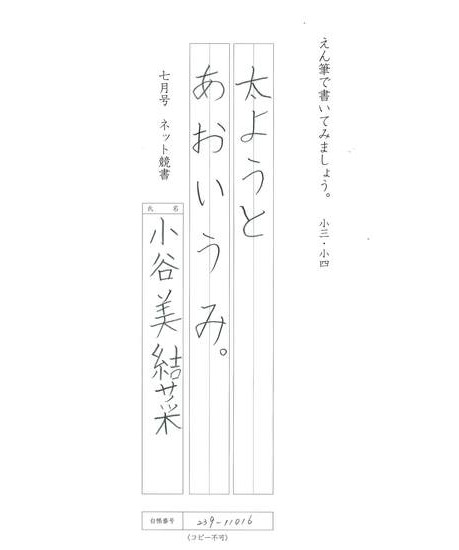 えん筆で書いてみましょう。 小三・小四
太ようと
あおいうみ。
七月号 ネット競書
氏名
小谷美結菜
台帳番号 239-11016
(コピー不可)